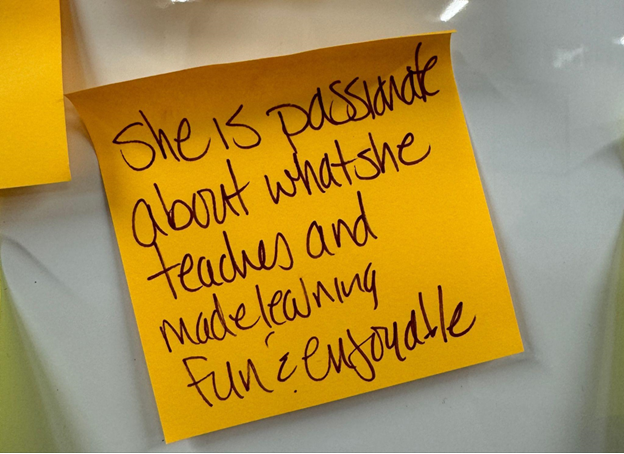 She is passionate
about what she
teaches and
made learning
fun & enjoyable